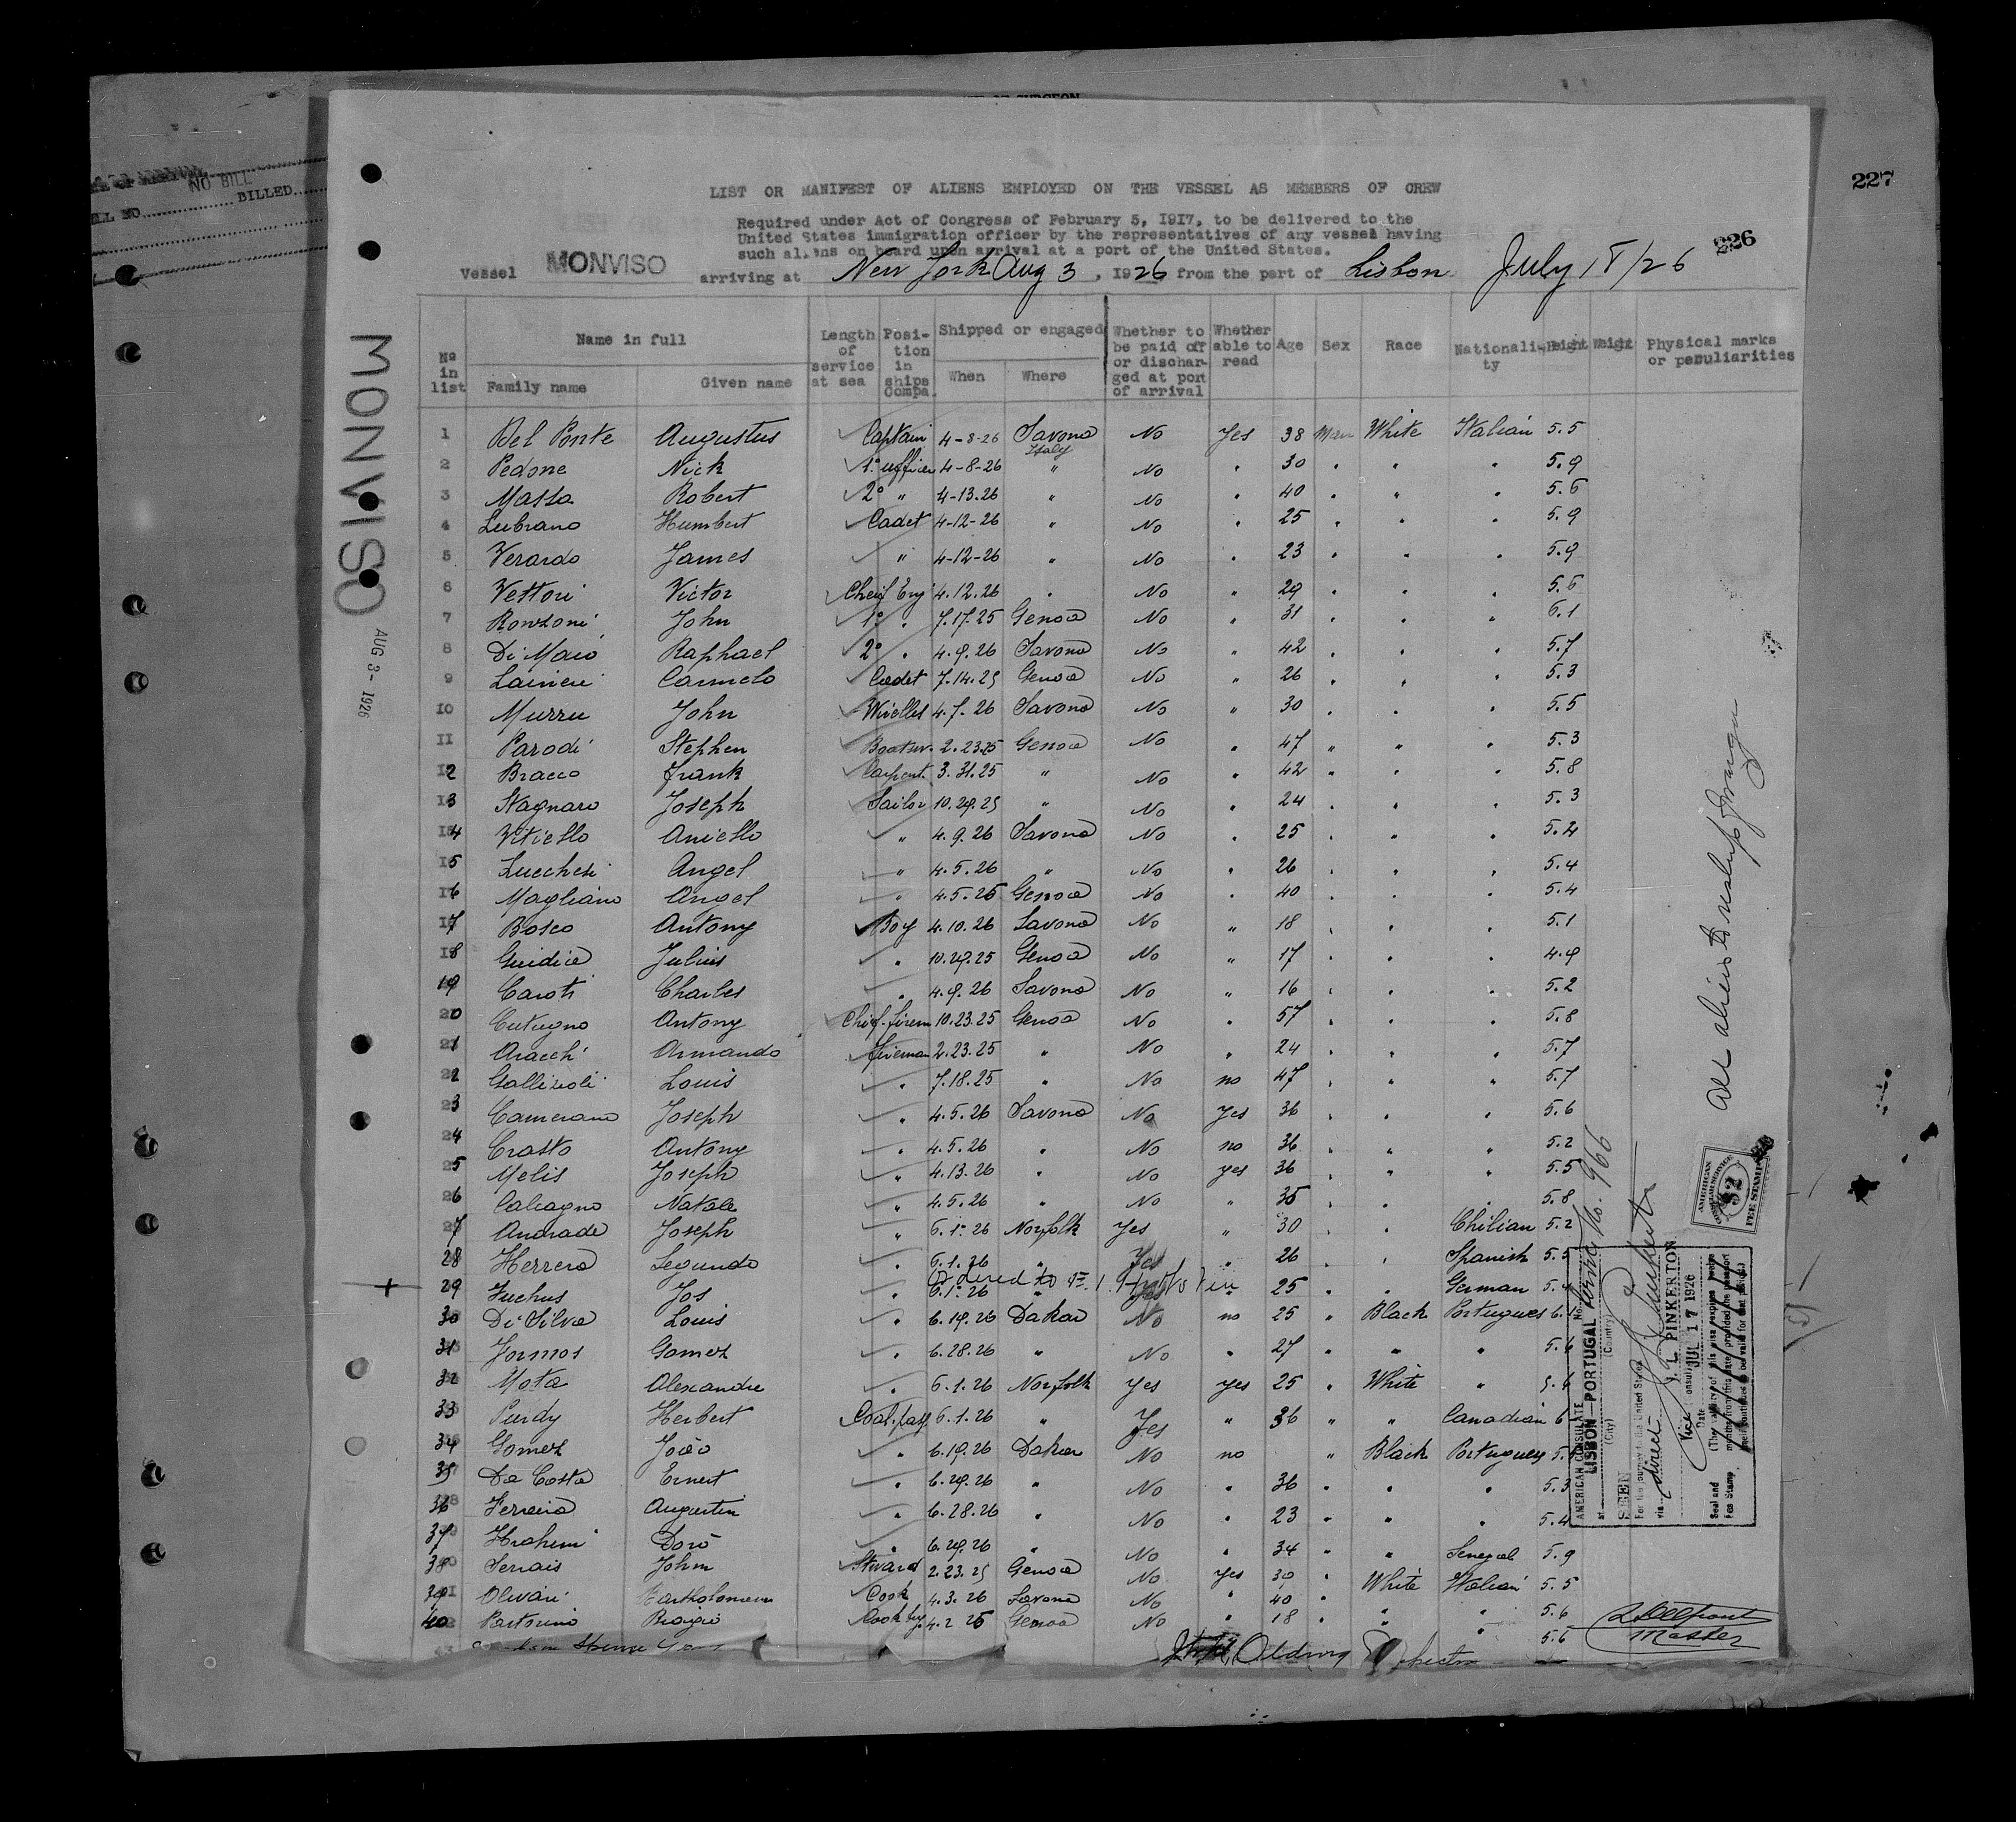 227
226
NO BILL
BILLED
LIST OR MANIFEST OF ALIENS EMPLOYED ON THE VESSEL AS MEMBERS OF CREW
Required under Act of Congress of February 5, 1917, to be delivered to the
United States immigration officer by the representatives of any vessel having
such aliens on board upon arrival at a port of the United States.
Vessel MONVISO arriving at New York Aug 3, 1926 from the part of Lisbon July 18/26
MONVISO
AUG 3 - 1926
No in list Name in full Family name Given name Length of service at sea Posi-tion in ships Compa. Shipped or engaged When Where Whether to be paid off or dischar-ged at port of arrival Whether able to read Age Sex Race Nationali-ty Height Weight Physical marks or peculiarities
1 Del Ponte Augustus Captain 4-8-26 Savona Italy No Yes 38 Man White Italian 5.5
2 Pedone Nick 1° officer 4-8-26 " No " 30 " " " 5.9
3 Massa Robert 2° " 4-13.26 " No " 40 " " " 5.6
4 Lubrano Humbert Cadet 4-12-26 " No " 25 " " " 5.9
5 Verardo James " 4-12-26 " No " 23 " " " 5.9
6 Vettori Victor Cheif Eng 4.12.26 " No " 29 " " " 5.6
7 Ronzoni John 1° " 7.17.25 Genoa No " 31 " " " 6.1
8 Di Maio Raphael 2° " 4.9.26 Savona No " 42 " " " 5.7
9 Carmelo Cadet 7.14.25 Genoa No " 26 " " " 5.3
10 Murru John Wirelles 4.7.26 Savona No " 30 " " " 5.5
11 Parodi Stephen Boatsw. 2.23.25 Genoa No " 47 " " " 5.3
12 Bracco Frank Carpent. 3.31.25 " No " 42 " " " 5.8
13 Stagnaro Joseph Sailor 10.29.25 " No " 24 " " " 5.3
14 Vitiello Aniello " 4.9.26 Savona No " 25 " " " 5.4
15 Lucchesi Angel " 4.5.26 " No " 26 " " " 5.4
16 Magliano Angel " 4.5.26 Genoa No " 40 " " " 5.4
17 Bosco Antony Boy 4.10.26 Savona No " 18 " " " 5.1
18 Guidice Julius " 10.29.25 Genoa No " 17 " " " 4.9
19 Caroti Charles " 4.9.26 Savona No " 16 " " " 5.2
20 Cutugno Antony Chief firem 10.23.25 Genoa No " 57 " " " 5.8
21 Aracchi Armando fireman 2.23.25 " No " 24 " " " 5.7
22 Gallinoli Louis " 7.18.25 " No no 47 " " " 5.7
23 Camerano Joseph " 4.5.26 Savona No Yes 36 " " " 5.6
24 Crasto Antony " 4.5.26 " No no 36 " " " 5.2
25 Melis Joseph " 4.13.26 " No yes 36 " " " 5.5
26 Calcagno Natale " 4.5.26 " No " 35 " " " 5.8
27 Andrade Joseph " 6.1.26 Norfolk Yes " 30 " " Chilian 5.2
28 Herrera Segundo " 6.1.26 " Yes " 26 " " Spanish 5.5
29 Fuchus Jos " 6.1.26 " " 25 " " German 5.4
30 Di Silva Louis " 6.19.26 Dakar No no 25 " Black Portugues
31 Gomez " 6.28.26 " No " 27 " " " 5.6
32 Mota Alexandre " 6.1.26 Norfolk Yes yes 25 " White "
33 Purdy Herbert Coal.pass 6.1.26 " Yes " 36 " " Canadian
34 Gomez João " 6.19.26 Dakar No no " Black Portugues
35 Da Costa Ernest " 6.29.26 " No " 36 " " " 5.3
36 Ferreira Augustin " 6.28.26 " No " 23 " " " 5.4
37 Doro " 6.29.26 " No " 34 " " Senegal 5.9
38 Serrais John Steward 2.23.25 Genoa No yes 30 " White Italian 5.5
39 Olivari Bartholomew Cook 4.3.26 Savona No " 40 " " " 5.6
40 Pastorino Biagio Cook 4.2.26 Genoa No " 18 " " " 5.6
Master
AMERICAN CONSULAR SERVICE
FEE STAMP
AMERICAN CONSULATE
LISBON—PORTUGAL Service No. 966
(City) (Country)
SEEN
For the journey to the United States
via direct
J. L. PINKERTON
Vice Consul
JUL 17 1926
Date
Seal and
Fee Stamp